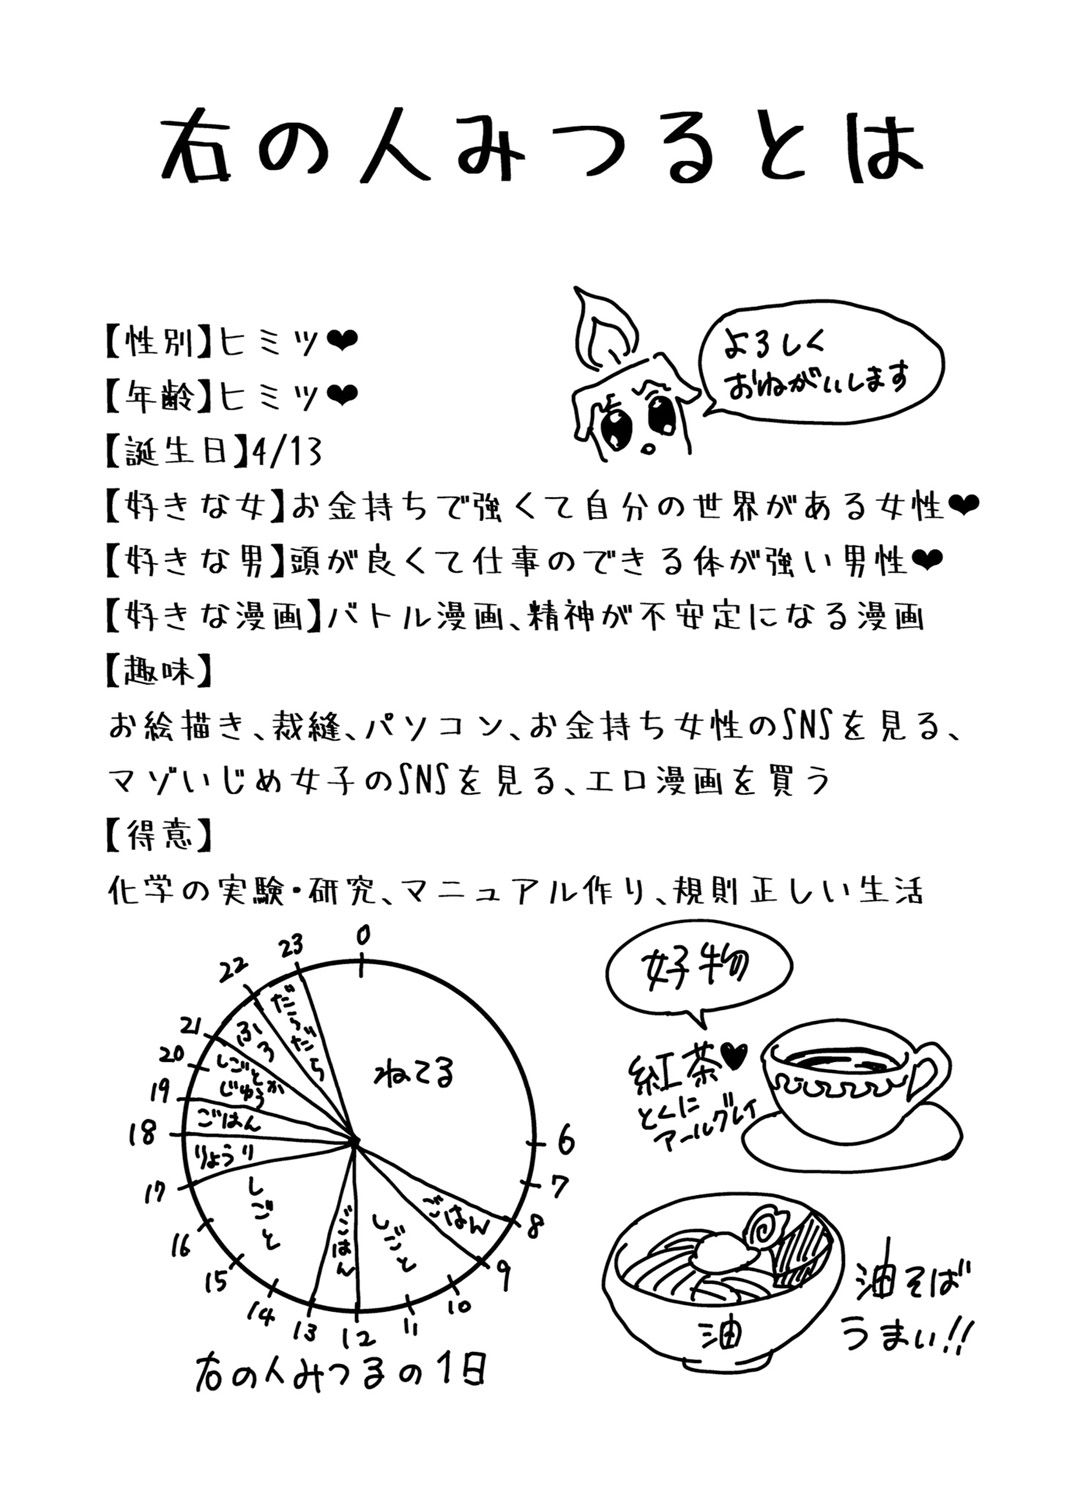 右の人みつるとは
【性別】ヒミツ❤
【年齢】ヒミツ❤
【誕生日】4/13
よろしく
おねがいします
【好きな女】お金持ちで強くて自分の世界がある女性❤
【好きな男】頭が良くて仕事のできる体が強い男性❤
【好きな漫画】バトル漫画、精神が不安定になる漫画
【趣味】
お絵描き、裁縫、パソコン、お金持ち女性のSNSを見る、
マゾいじめ女子のSNSを見る、エロ漫画を買う
【得意】
化学の実験・研究、マニュアル作り、規則正しい生活
0
6
7
8
9
10
11
12
13
14
15
16
17
18
19
20
21
22
23
ねてる
ごはん
しごと
ごはん
しごと
りょうり
ごはん
しごとか
じゆう
ふろ
だらだら
右の人みつるの1日
好物
紅茶♥
とくに
アールグレイ
油
油そば
うまい!!